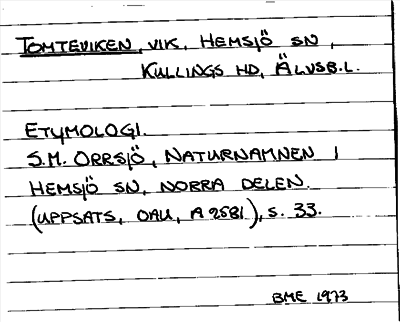 TOMTEVIKEN, VIK, HEMSJÖ SN,
KULLINGS HD, ÄLVSB.L.
ETYMOLOGI.
S.M. ORRSJÖ, NATURNAMNEN I
HEMSJÖ SN, NORRA DELEN.
(UPPSATS, OAU, A 2581), S. 33.
BME 1973